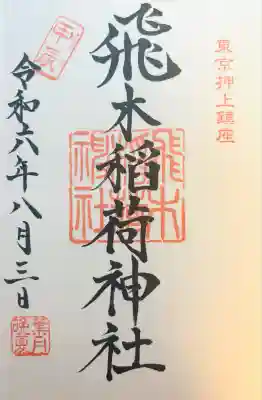 東京押上鎮座
飛木稲荷神社
飛木
稲荷
神社
令和六年八月三日
甲辰